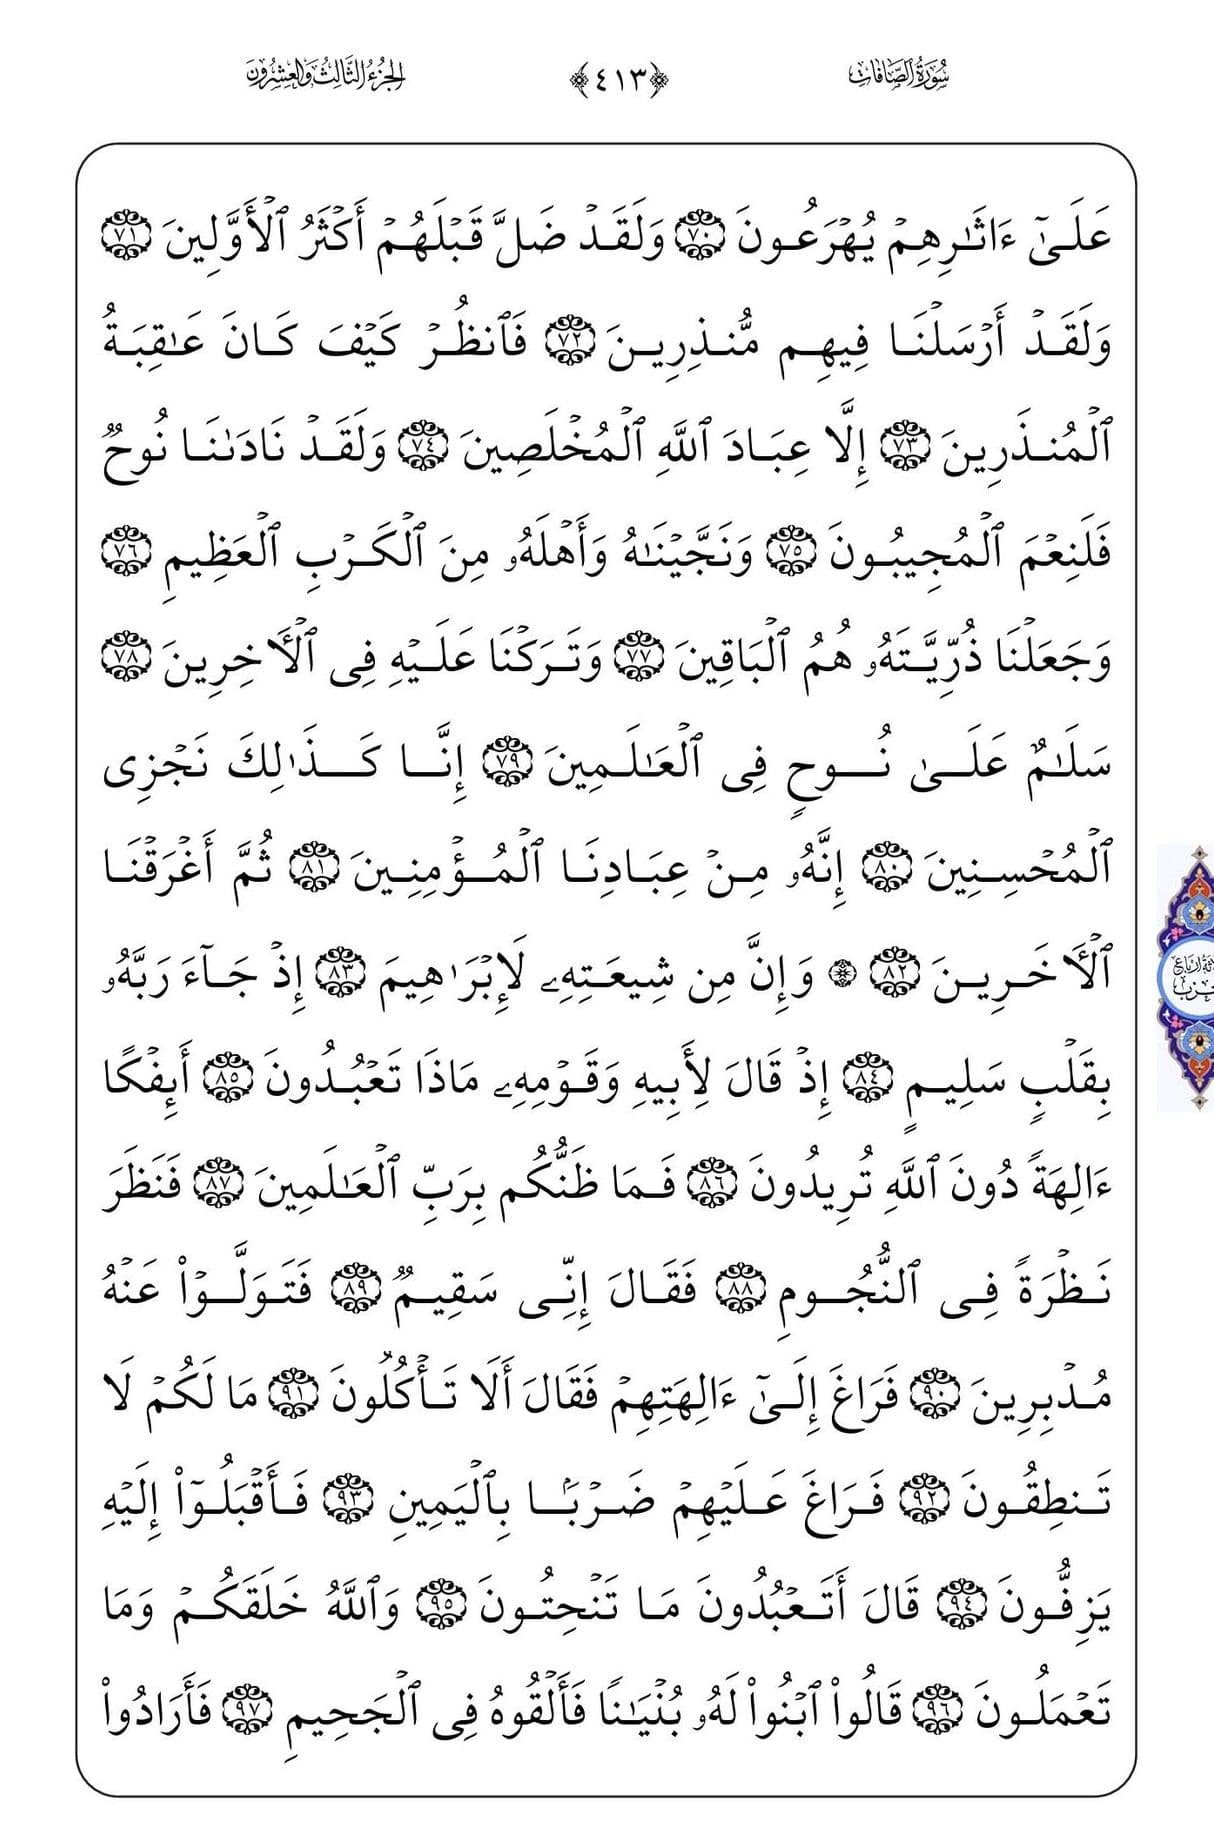 سُورَةُ الصَّافَّاتِ ﴿٤١٣﴾ الجُزْءُ الثَّالِثُ وَالعِشْرُونَ
عَلَىٰٓ ءَاثَٰرِهِمۡ يُهۡرَعُونَ ٧٠ وَلَقَدۡ ضَلَّ قَبۡلَهُمۡ أَكۡثَرُ ٱلۡأَوَّلِينَ ٧١
وَلَقَدۡ أَرۡسَلۡنَا فِيهِم مُّنذِرِينَ ٧٢ فَٱنظُرۡ كَيۡفَ كَانَ عَٰقِبَةُ
ٱلۡمُنذَرِينَ ٧٣ إِلَّا عِبَادَ ٱللَّهِ ٱلۡمُخۡلَصِينَ ٧٤ وَلَقَدۡ نَادَىٰنَا نُوحٞ
فَلَنِعۡمَ ٱلۡمُجِيبُونَ ٧٥ وَنَجَّيۡنَٰهُ وَأَهۡلَهُۥ مِنَ ٱلۡكَرۡبِ ٱلۡعَظِيمِ ٧٦
وَجَعَلۡنَا ذُرِّيَّتَهُۥ هُمُ ٱلۡبَاقِينَ ٧٧ وَتَرَكۡنَا عَلَيۡهِ فِي ٱلۡأٓخِرِينَ ٧٨
سَلَٰمٌ عَلَىٰ نُوحٖ فِي ٱلۡعَٰلَمِينَ ٧٩ إِنَّا كَذَٰلِكَ نَجۡزِي
ٱلۡمُحۡسِنِينَ ٨٠ إِنَّهُۥ مِنۡ عِبَادِنَا ٱلۡمُؤۡمِنِينَ ٨١ ثُمَّ أَغۡرَقۡنَا
ٱلۡأٓخَرِينَ ٨٢ ۞ وَإِنَّ مِن شِيعَتِهِۦ لَإِبۡرَٰهِيمَ ٨٣ إِذۡ جَآءَ رَبَّهُۥ
بِقَلۡبٖ سَلِيمٍ ٨٤ إِذۡ قَالَ لِأَبِيهِ وَقَوۡمِهِۦ مَاذَا تَعۡبُدُونَ ٨٥ أَئِفۡكًا
ءَالِهَةٗ دُونَ ٱللَّهِ تُرِيدُونَ ٨٦ فَمَا ظَنُّكُم بِرَبِّ ٱلۡعَٰلَمِينَ ٨٧ فَنَظَرَ
نَظۡرَةٗ فِي ٱلنُّجُومِ ٨٨ فَقَالَ إِنِّي سَقِيمٞ ٨٩ فَتَوَلَّوۡاْ عَنۡهُ
مُدۡبِرِينَ ٩٠ فَرَاغَ إِلَىٰٓ ءَالِهَتِهِمۡ فَقَالَ أَلَا تَأۡكُلُونَ ٩١ مَا لَكُمۡ لَا
تَنطِقُونَ ٩٢ فَرَاغَ عَلَيۡهِمۡ ضَرۡبَۢا بِٱلۡيَمِينِ ٩٣ فَأَقۡبَلُوٓاْ إِلَيۡهِ
يَزِفُّونَ ٩٤ قَالَ أَتَعۡبُدُونَ مَا تَنۡحِتُونَ ٩٥ وَٱللَّهُ خَلَقَكُمۡ وَمَا
تَعۡمَلُونَ ٩٦ قَالُواْ ٱبۡنُواْ لَهُۥ بُنۡيَٰنٗا فَأَلۡقُوهُ فِي ٱلۡجَحِيمِ ٩٧ فَأَرَادُواْ